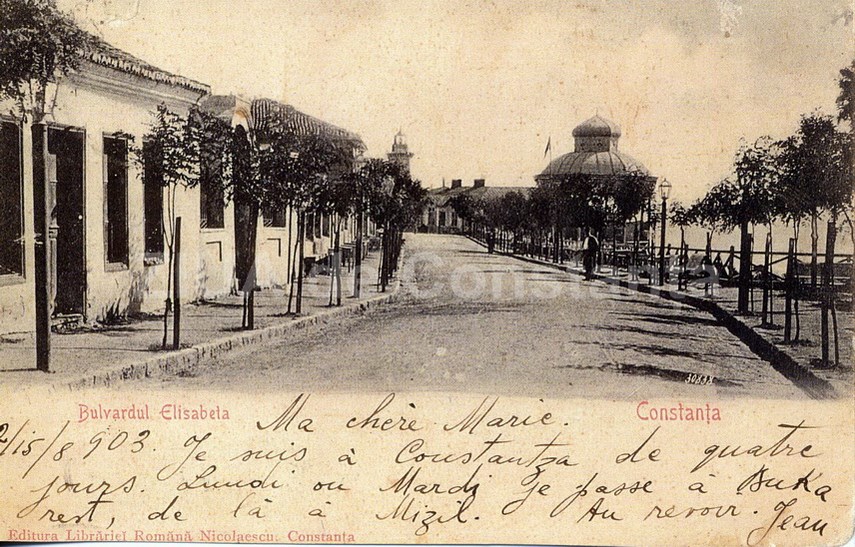 10833
Bulvardul Elisabeta
Constanţa
Ma chère Marie.
2/15/8 903. Je suis à Constantza de quatre
jours. Lundi ou Mardi je passe à Buka
rest, de là à Mizil. Au revoir. Jean
Editura Librăriei Română Nicolaescu. Constanta